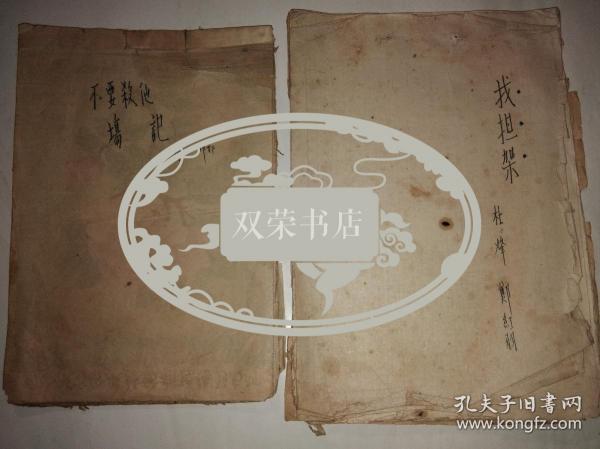 不要殺他
場記
找担架
杜烽
双荣书店
孔夫子旧书网
www.kongfz.com